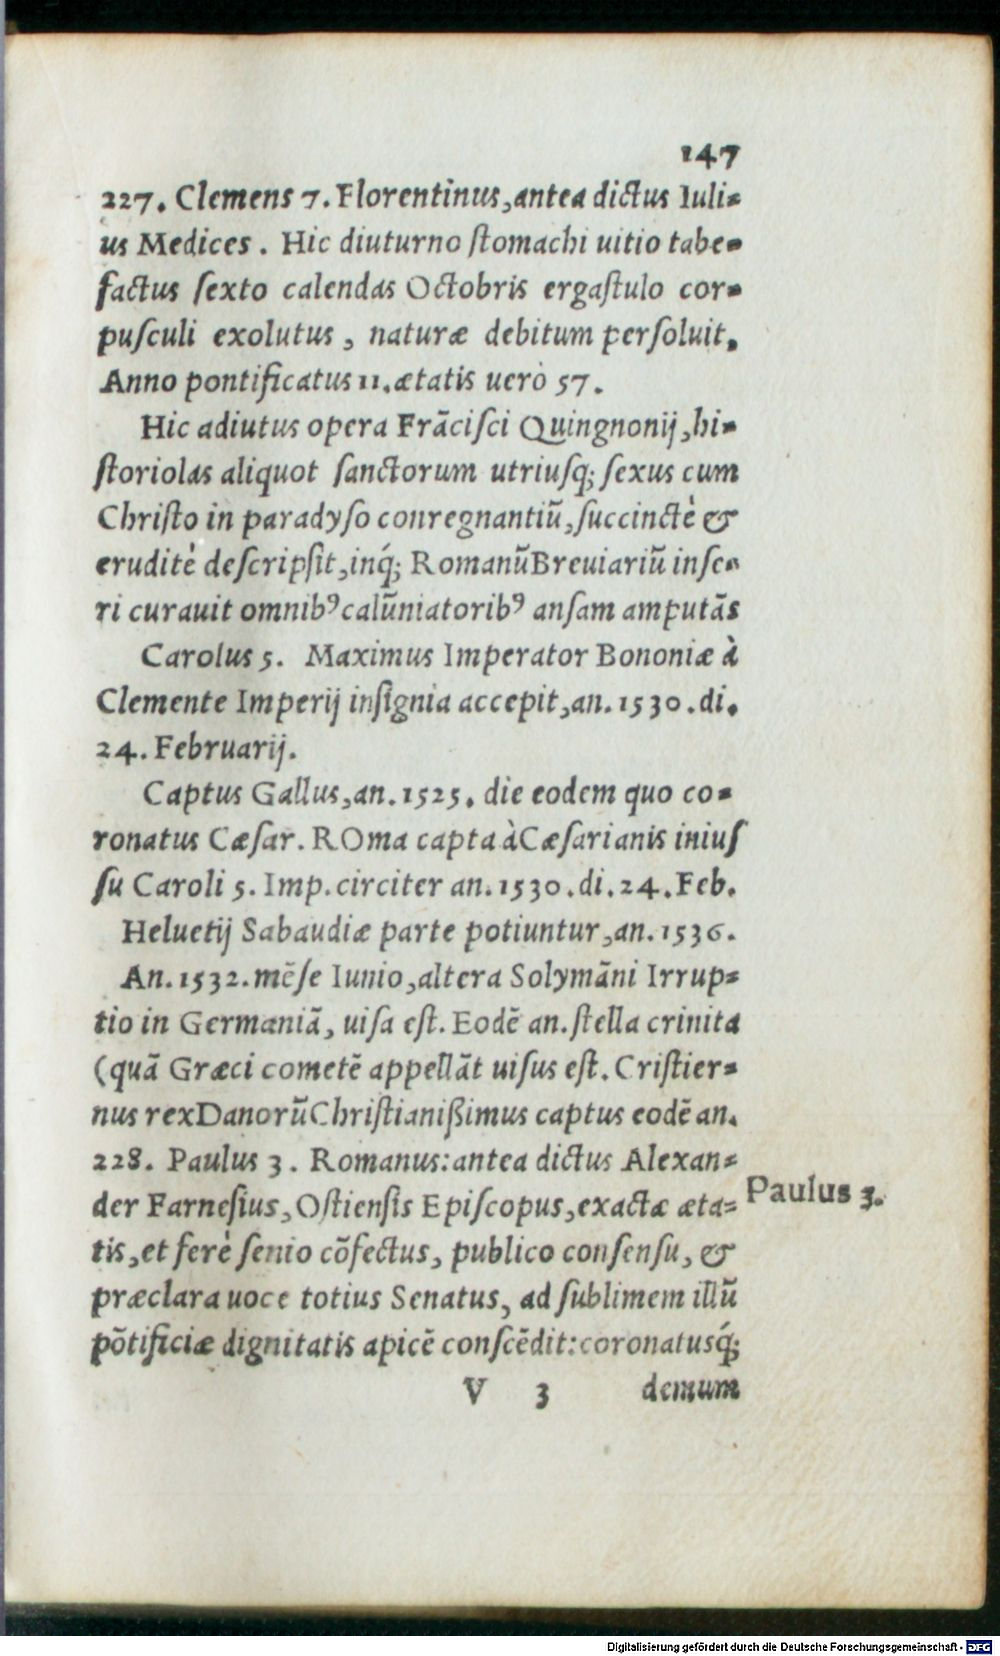 147
227. Clemens 7. Florentinus, antea dictus Iuli=
us Medices . Hic diuturno ſtomachi uitio tabe=
factus ſexto calendas Octobris ergaſtulo cor=
puſculi exolutus , naturæ debitum perſoluit.
Anno pontificatus 11. ætatis uerò 57.
Hic adiutus opera Frāciſci Quingnonij, hi=
ſtoriolas aliquot ſanctorum utriuſq; ſexus cum
Chriſto in paradyſo conregnantiū, ſuccinctè &
eruditè deſcripſit, inq́; Romanū Breuiariū inſe=
ri curauit omnibꝰ calūniatoribꝰ anſam amputās
Carolus 5. Maximus Imperator Bononiæ à
Clemente Imperij inſignia accepit, an. 1530. di.
24. Februarij.
Captus Gallus, an. 1525. die eodem quo co=
ronatus Cæſar. ROma capta à Cæſarianis iniuſ
ſu Caroli 5. Imp. circiter an. 1530. di. 24. Feb.
Heluetij Sabaudiæ parte potiuntur, an. 1536.
An. 1532. mēſe Iunio, altera Solymāni Irrup=
tio in Germaniā, uiſa eſt. Eodē an. ſtella crinita
(quā Græci cometē appellāt uiſus eſt. Criſtier=
nus rex Danorū Chriſtianißimus captus eodē an.
228. Paulus 3. Romanus: antea dictus Alexan=
der Farneſius, Oſtienſis Epiſcopus, exactæ æta=
Paulus 3.
tis, et ferè ſenio cōfectus, publico conſenſu, &
præclara uoce totius Senatus, ad ſublimem illū
pōtificiæ dignitatis apicē conſcēdit: coronatusq́;
V 3 demum
Digitalisierung gefördert durch die Deutsche Forschungsgemeinschaft - DFG